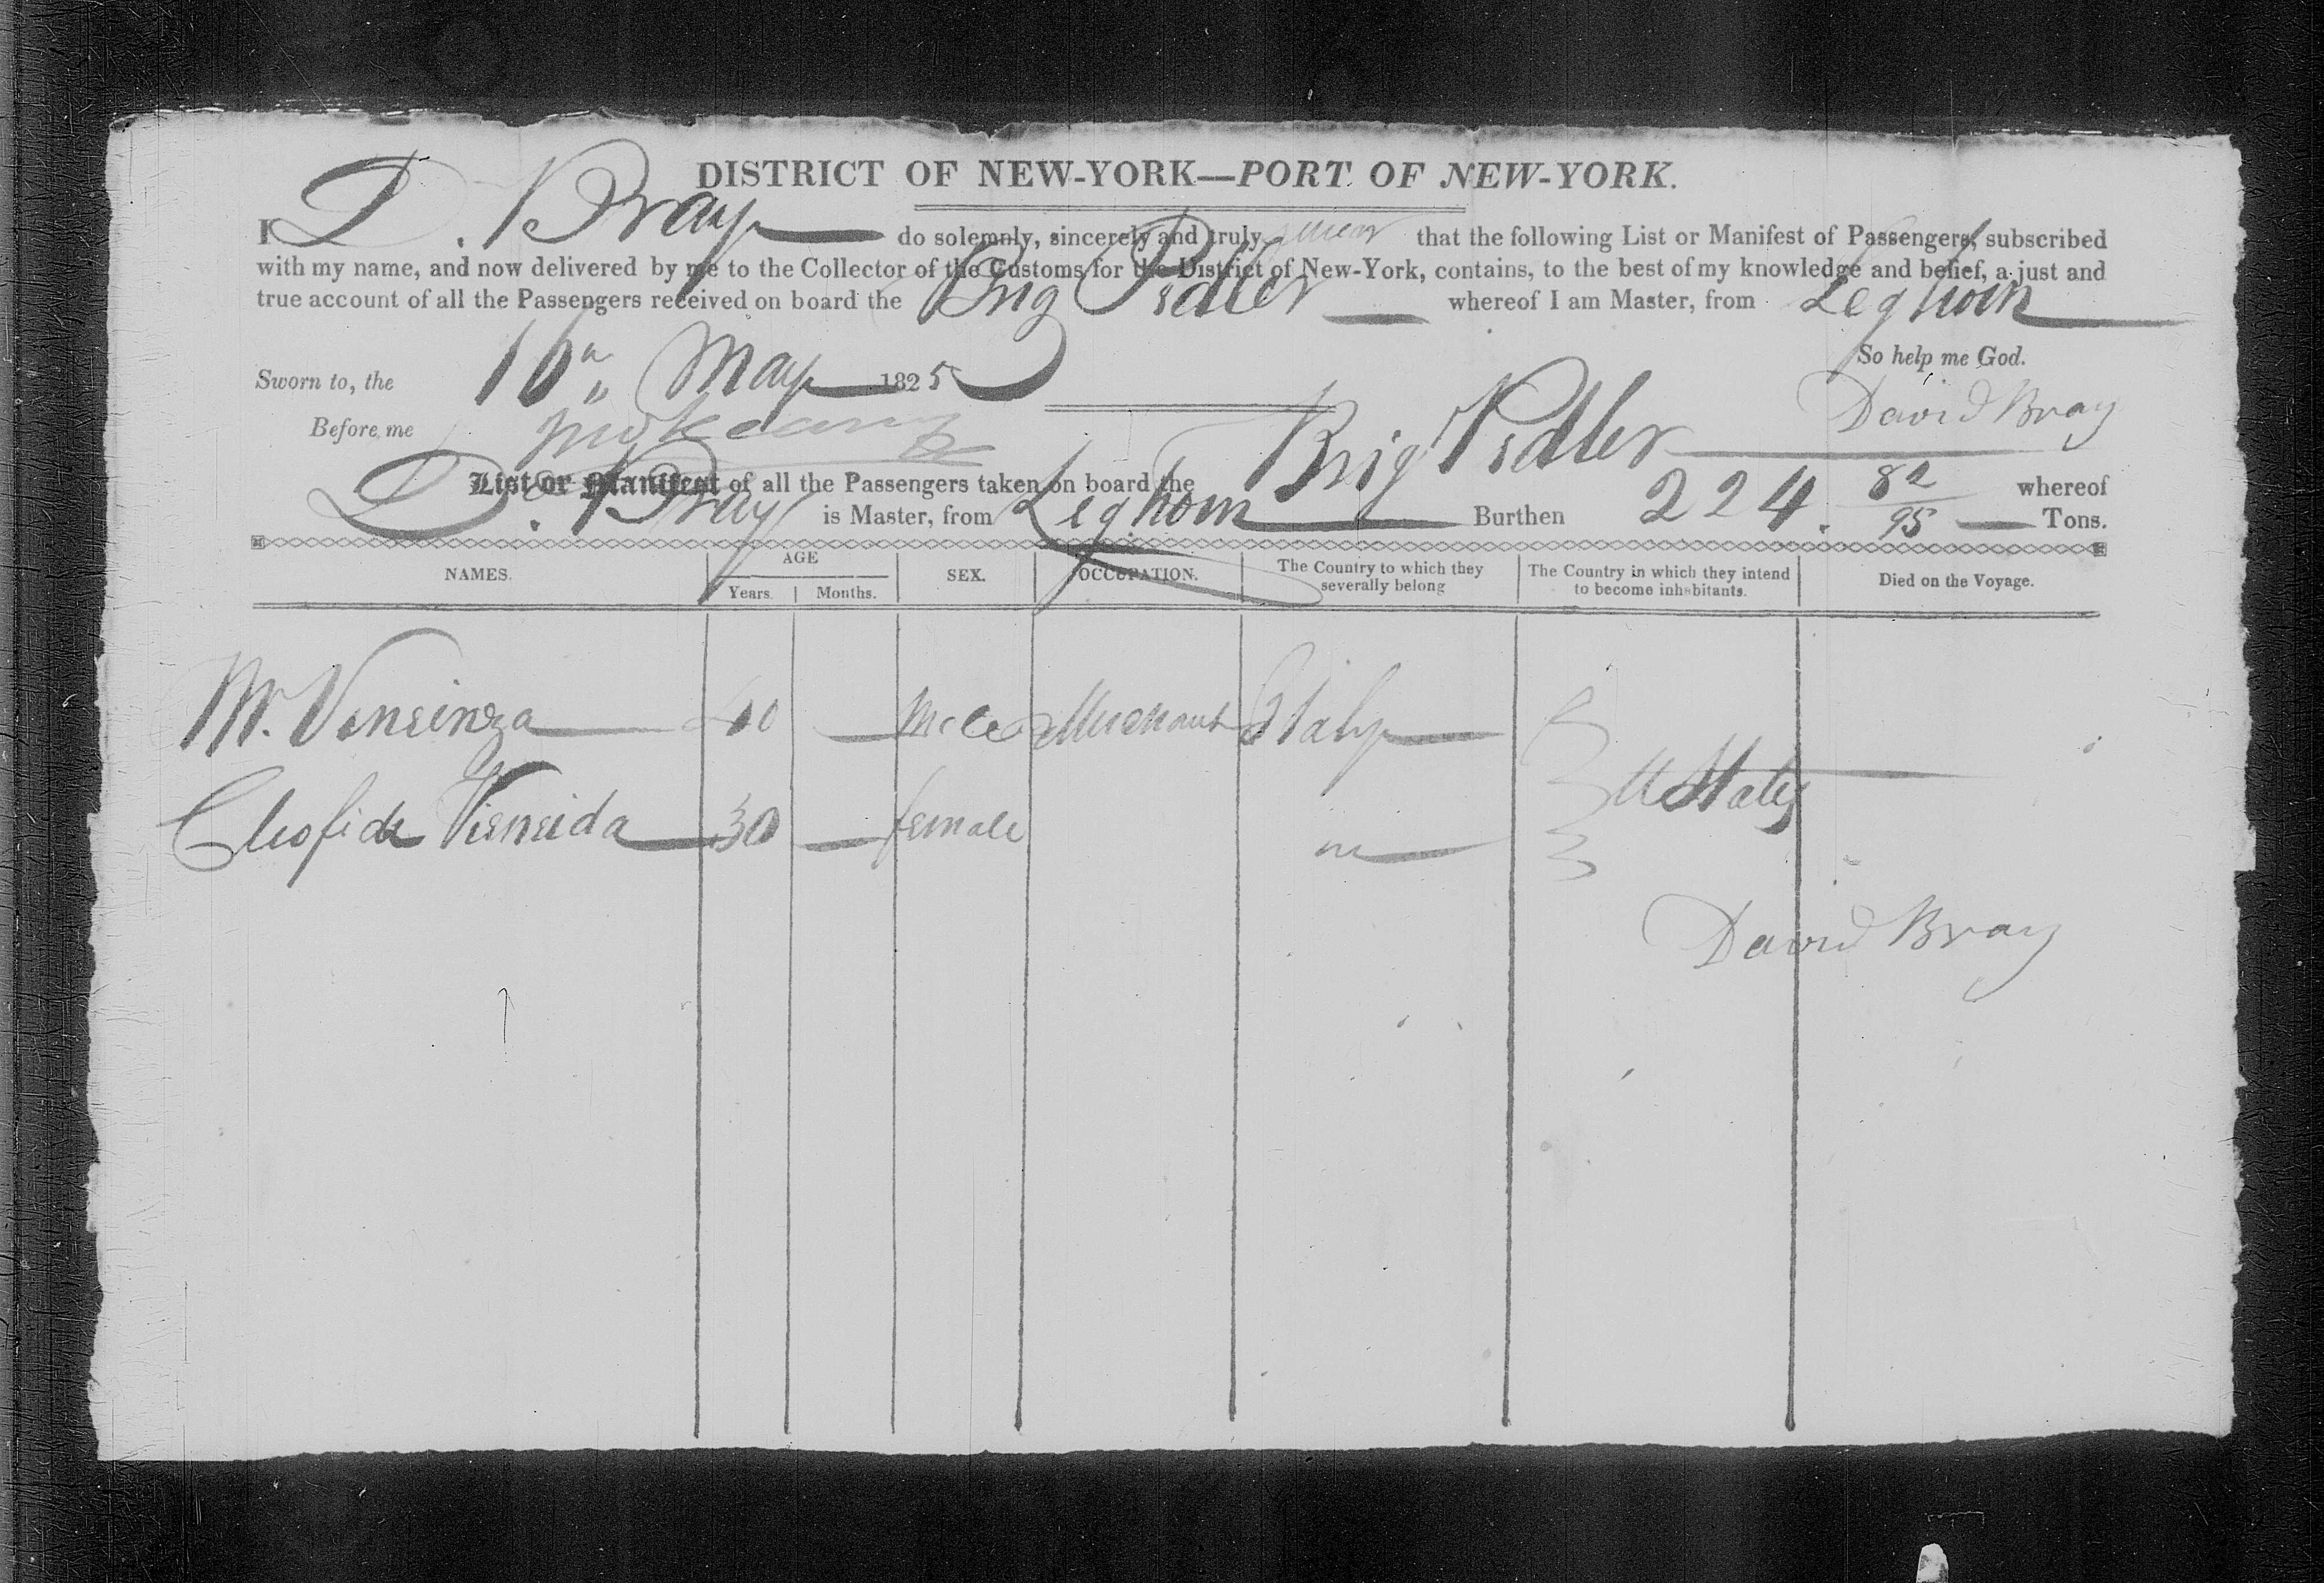 DISTRICT OF NEW-YORK—PORT OF NEW-YORK.
I D. Bray do solemnly, sincerely and truly swear that the following List or Manifest of Passengers, subscribed
with my name, and now delivered by me to the Collector of the Customs for the District of New-York, contains, to the best of my knowledge and belief, a just and
true account of all the Passengers received on board the Brig Pedler whereof I am Master, from Leghorn
So help me God.
Sworn to, the 16th May 1825
David Bray
Before me
List or Manifest of all the Passengers taken on board the Brig Pedler whereof
D. Bray is Master, from Leghorn Burthen 224. 82/95 Tons.
NAMES. AGE Years. Months. SEX. OCCUPATION. The Country to which they severally belong The Country in which they intend to become inhabitants. Died on the Voyage.
Mr. 40 Male Merchant Italy
U States
30 female
David Bray